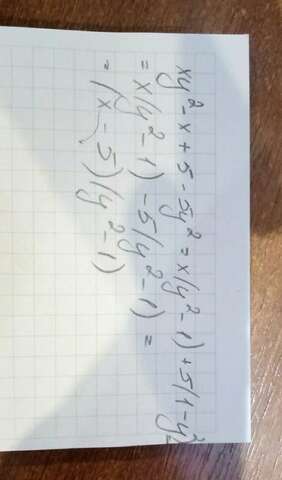 xy² - x + 5 - 5y² = x(y² - 1) + 5(1 - y²
= x(y² - 1) - 5(y² - 1) =
= (x - 5)(y² - 1)